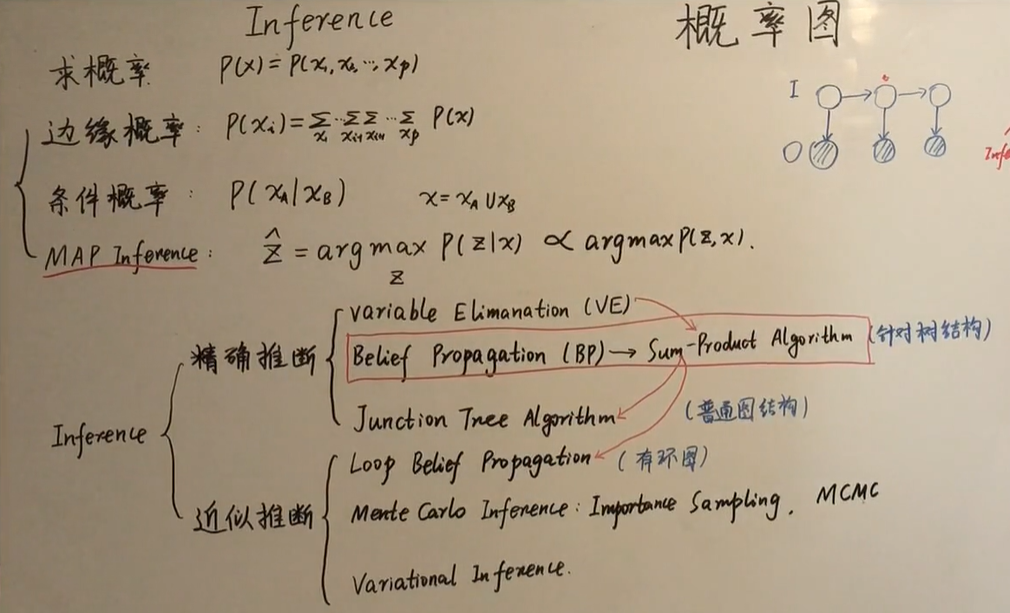 Inference
概率图
求概率 P(x) = P(x₁, x₂, ⋯, xₚ)
I
边缘概率: P(xᵢ) = Σ_{x₁} ⋯ Σ_{xᵢ₋₁} Σ_{xᵢ₊₁} ⋯ Σ_{xₚ} P(x)
O
条件概率: P(x_A | x_B) x = x_A ∪ x_B
MAP Inference: ẑ = argmax_z P(z|x) ∝ argmax P(z,x).
Variable Elimanation (VE)
精确推断
Belief Propagation (BP) → Sum-Product Algorithm (针对树结构)
Junction Tree Algorithm (普通图结构)
Inference
Loop Belief Propagation (有环图)
近似推断
Mente Carlo Inference: Importance Sampling, MCMC
Variational Inference.